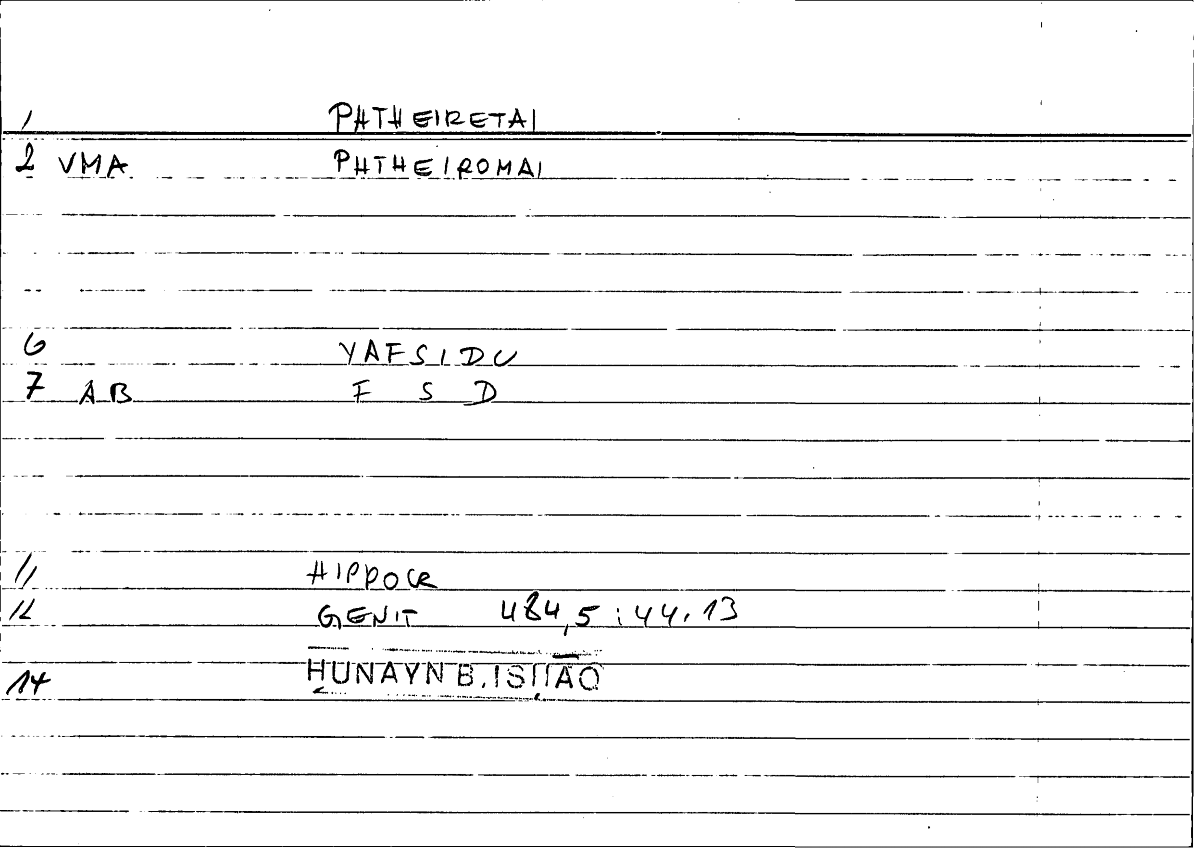 1 PHTHEIRETAI
2 VMA PHTHEIROMAI
6 YAFSIDU
7 AB F S D
11 HIPPOCR
12 GENIT 484,5 : 44.13
14 ḤUNAYN B. ISḤĀQ